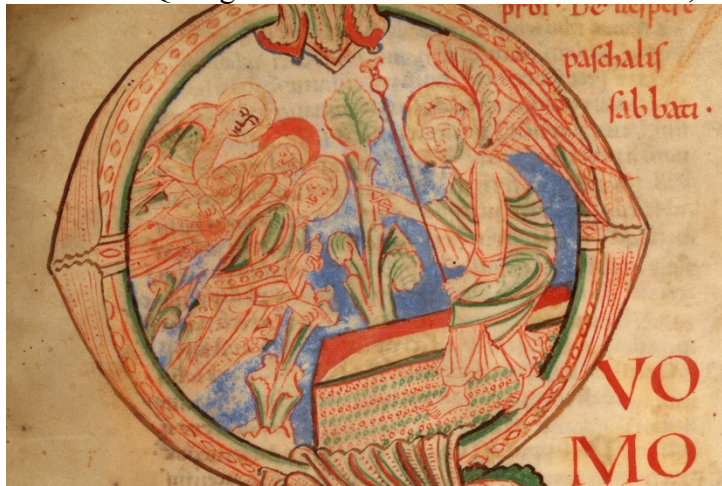 prol · De uespere
paschalis
sabbati ·
VO
MO